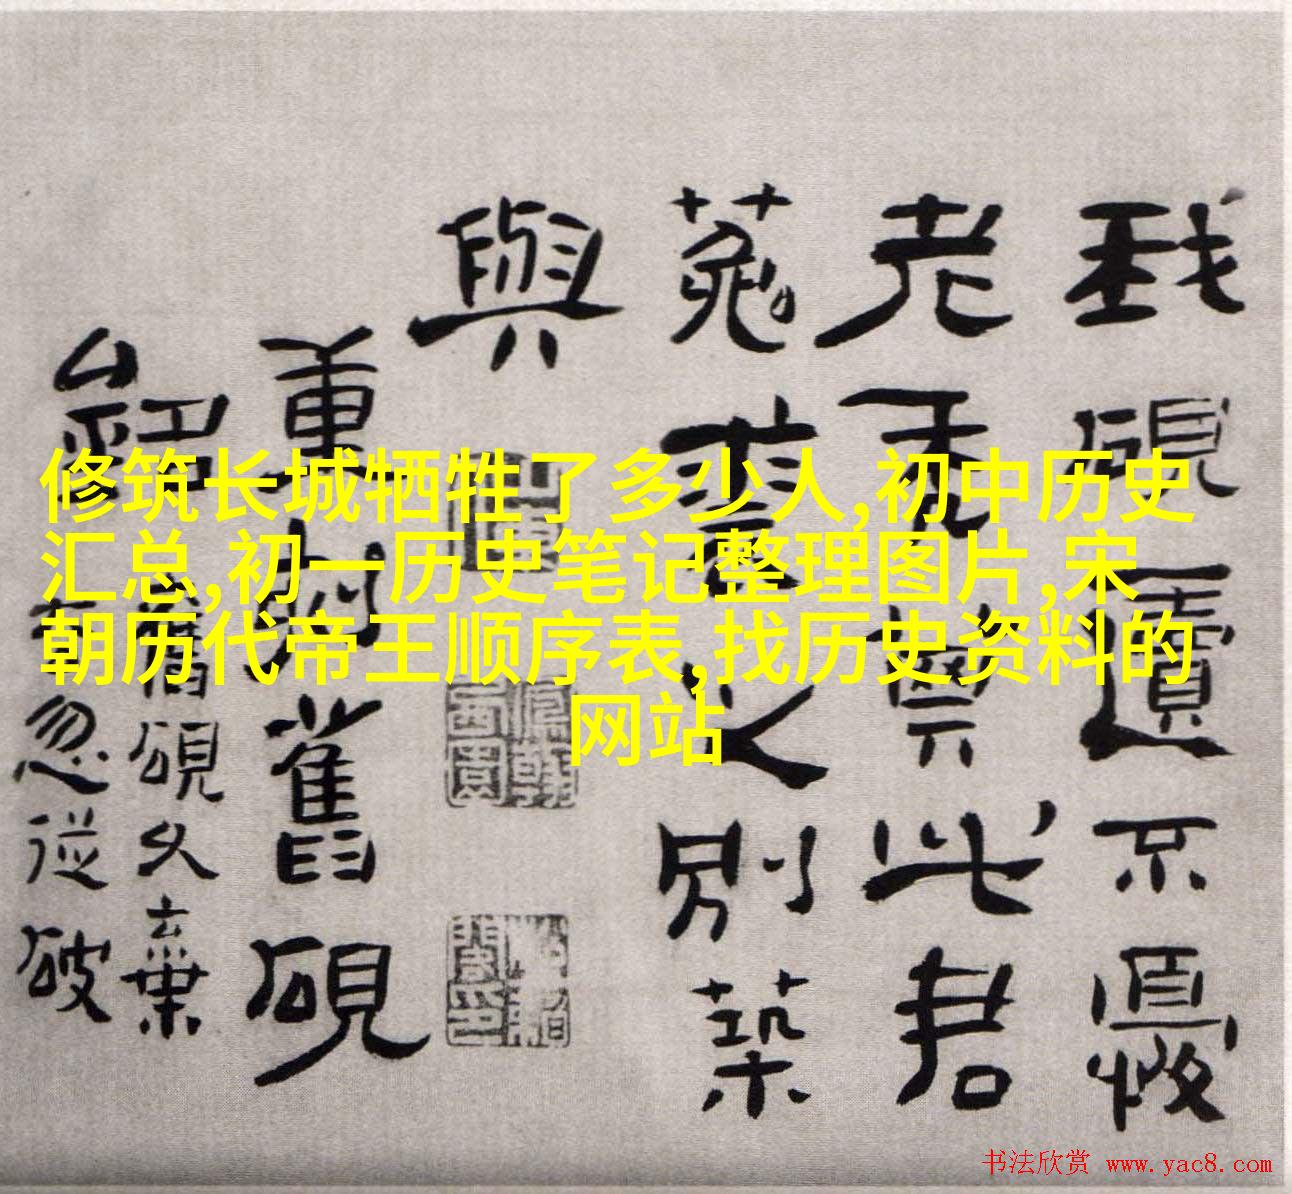 修筑长城牺牲了多少人,初中历史
汇总,初一历史笔记整理图片,宋
朝历代帝王顺序表,找历史资料的
网站
硯遺不
老此君
菟裘之別築
與
舊硯
舊硯久棄
忽從破
书法欣赏 www.yac8.com